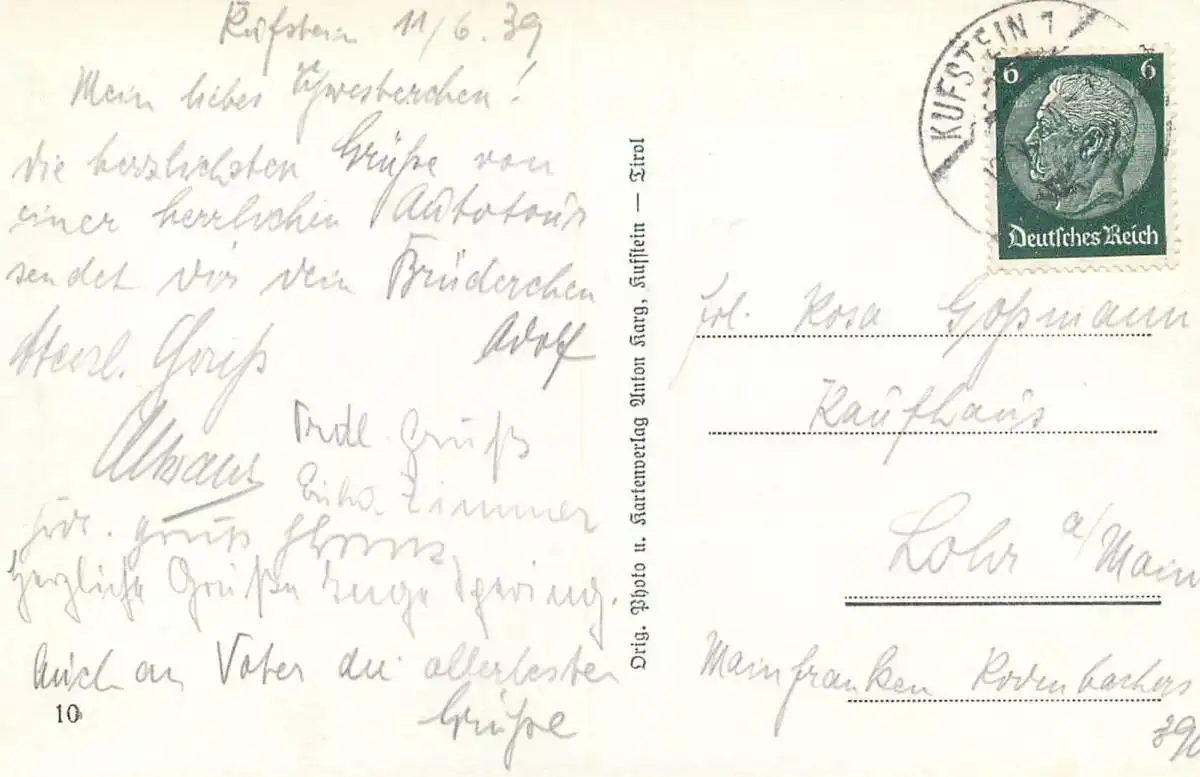 Kufstein 11/6.39
Mein liebes Schwesterchen!
die herzlichsten Grüße von
einer herrlichen Autotour
sendet dir dein Brüderchen
Adolf
Herzl. Gruß
Frdl. Gruß
Zimmer
Frdl. Gruß
Herzliche Grüße
Auch an Vater die allerbesten
Grüße
10
Orig. Photo u. Kartenverlag Anton Karg, Kufstein — Tirol
KUFSTEIN 1
6 6
Deutsches Reich
Frl. Rosa Goßmann
Kaufhaus
Lohr a/Main
Mainfranken
390